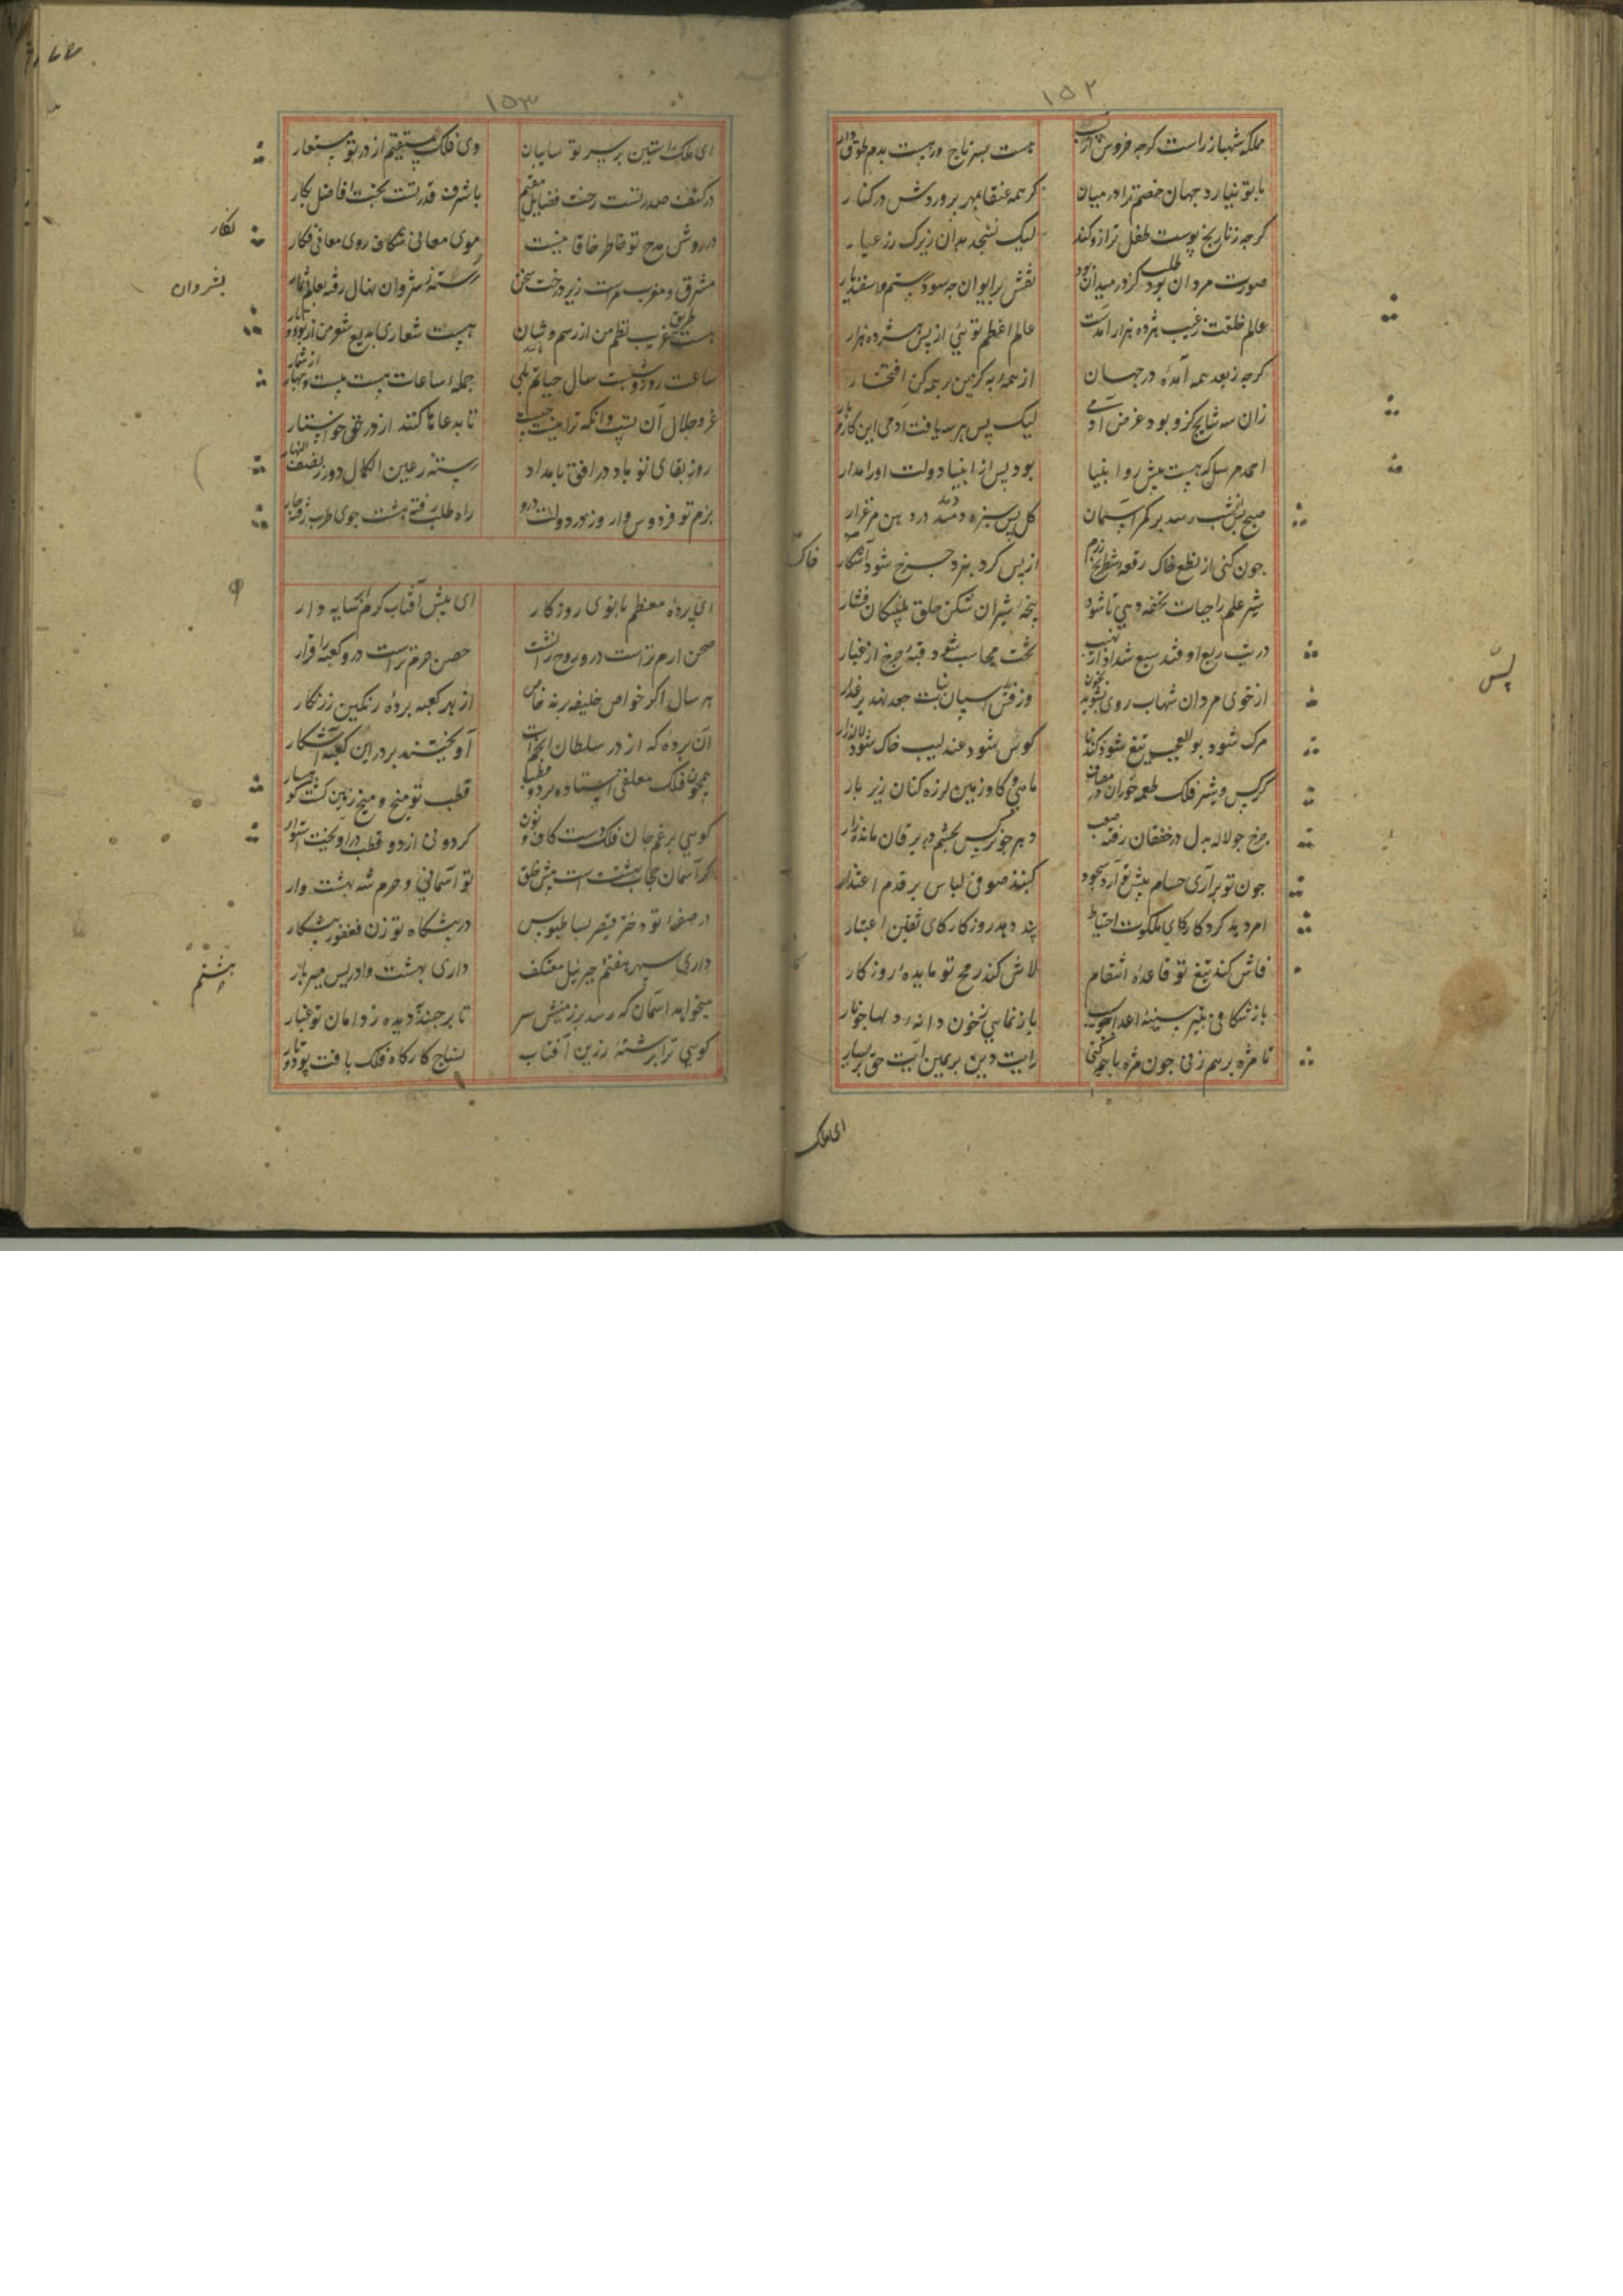 ۱۵۲
مملکه شهباز راست کرجه خروس از نسب
هست بسر تاج ور هست بدم طوق دار
با تو نیارد جهان خصم ترا در میان
کر همه عنقا بمهر پروردش در کنار
کرجه ز نارنج پوست طفل ترازو کند
لیک نسنجد بدان زیرک زر عیار
صورت مردان طلب کز در میدان بود
نقش بر ایوان جه سود رستم و اسفندیار
عالم خلقت ز غیب هژده هزار آمدست
عالم اعظم توئی از پس هشرده هزار
کرجه ز بعد همه آمدهٔ در جهان
از همهٔ به کزین بر همه کن افتخار
زان سه نتایج کزو بود غرض آدمی
لیک پس هر سه یافت آدمی این کار و بار
احمد مرسل که هست پیش رو انبیا
بود پس از انبیا دولت او را مدار
صبح پس شب رسد بر کمر آسمان
کل پس سبزه دمد در دهن مرغزار
جون کنی از نطع خاک رقعه شطرنج رزم
از پس کرد نبرد جرخ شود خاکسار
شیر علم را حیات تحفه دهی تا شود
پنجه شیران شکن حلق پلنکان فشار
در تب ربع اوفتد سبع شداد از نهیب
تخت محاسب شود قبهٔ جرخ از غبار
از خوی مردان شهاب روی بشوید بخون
وز تف اسپان نبات جعد نهد بر عذار
مرک شود بوالعجب تیغ شود کندنا
کوس شود عندلیب خاک شود لاله زار
کرکس و شیر فلک طعمه خوران در مصاف
ماهی و کاو زمین لرزه کنان زیر بار
جرخ جو لاله بدل در خفقان رفته صعب
دهر جو نرکس بچشم در یرقان مانده زار
جون تو برآری حسام پیش تو آرد سجود
کنبذ صوفی لباس بر قدم اعتذار
امر دهد کردکار کای ملکوت احتیاط
پند دهد روزکار کای ثقلین اعتبار
فاش کند تیغ تو قاعدهٔ انتقام
لاش کند رمح تو مایدهٔ روزکار
باز شکافی بتیر سینه اعدا جو سیب
باز نمایی ز خون دانهٔ دلها جو نار
تا مژه برهم زنی جون مژه باهم کنی
رایت دین بر یمین آیت حق بر یسار
پس
خاک
ای ملک
۱۵۳
ای ملک راستین بر سر تو سایبان
وی فلک مستقیم از در تو مستعار
در کنف صدر تست رخت فضایل مقیم
با شرف قدر تست بخت افاضل بکار
در روش مدح تو خاطر خاقانیست
موی معانی شکاف روی معانی نکار
مشرق و مغرب مراست زیر درخت سخن
رسته ز شروان نهال رفته بعالم ثمار
هست طریق غریب نظم من از رسم و شان
هست شعاری بدیع شعر من از پود و تار
ساعت روز و شبست سال حیاتم بلی
جملهٔ ساعات هست بیست و جهار از شمار
عز و جلال آن تست وانکه ترا نیست
تا بد عا ما کنند از در حق خواستار
روز بقای تو باد در افق بامداد
رسته ز عین الکمال دور ز نصف النهار
بزم تو فردوس وار وز در دولت درو
راه طلب رفته هشت جوی طرب رفته جار
ای پردهٔ معظم بانوی روزکار
ای پیش آفتاب کرم سایه دار
صحن ارم تراست درو روح را نشست
حصن حرم تراست درو کعبه را قرار
هر سال اکر خواص خلیفه برند خاص
از بهر کعبه پردهٔ رنکین زرنکار
آن پرده که از در سلطان انجم است
آویختند بر در این کعبه آشکار
همجون فلک معلقی استاده بر دو قطب
قطب تو میخ و میخ زمین کشته کوهسار
کویی برغم جان فلک دست کاف و نون
کردونی از دو قطب در اویخت استوار
کر آسمان حجاب بهشت است پیش خلق
تو آسمانی و حرم شه بهشت وار
در صفهٔ تو دختر قیصر بساط بوس
در پیشکاه تو زن فغفور پیشکار
داری سپهر هفتم جبرئیل معتکف
داری بهشت وادریس میر بار
میخواهد آسمان که رسد بر زمینش سر
تا برجند آن دیده ز دامان تو غبار
کویی ترا برشتهٔ زرین آفتاب
نساج کارکاه فلک بافت پود و تار
نکار
بشروان
هشتم